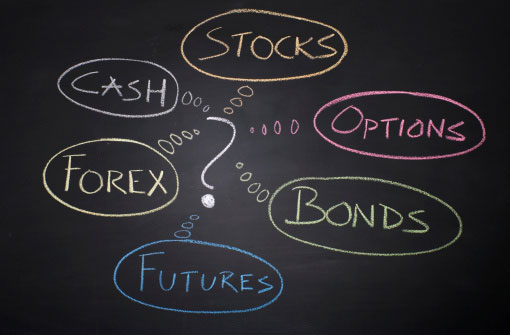 STOCKS
CASH
OPTIONS
?
FOREX
BONDS
FUTURES